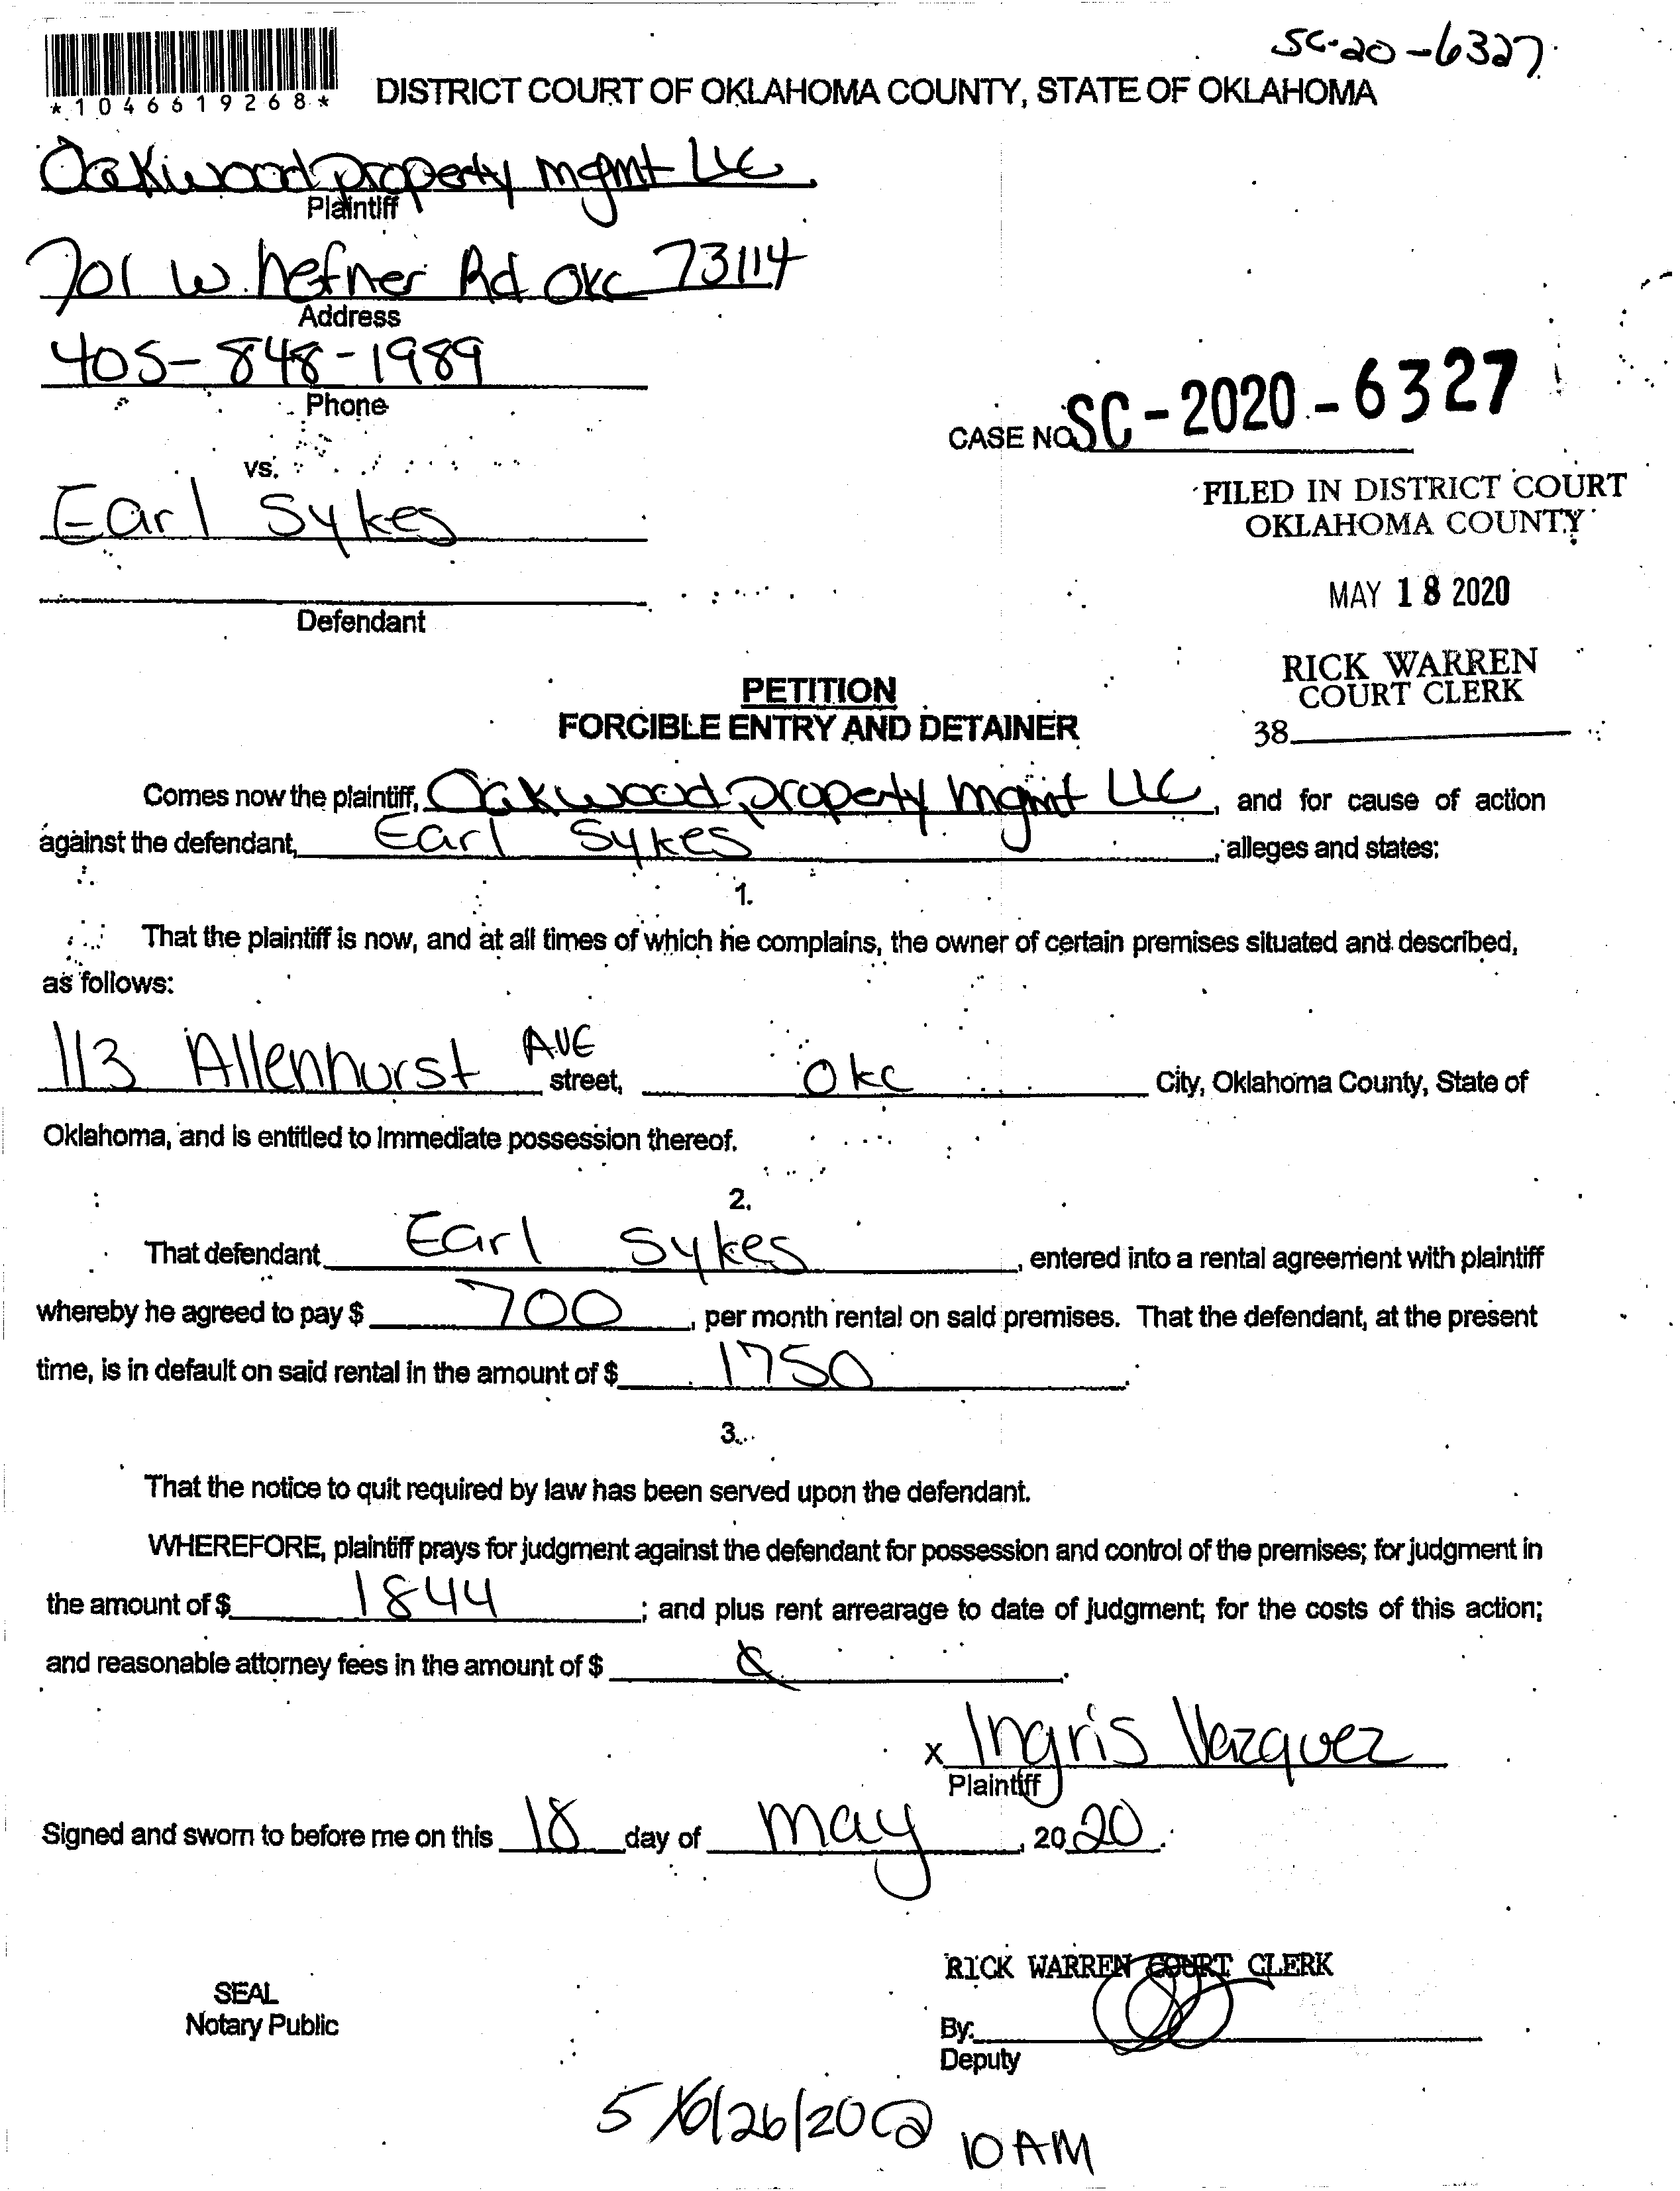 SC-20-6327
*1046619268*
DISTRICT COURT OF OKLAHOMA COUNTY, STATE OF OKLAHOMA
Oakwood property mgmt LLC
Plaintiff
701 W. hefner Rd OKC 73114
Address
405-848-1989
Phone
CASE NO. SC-2020-6327
vs.
FILED IN DISTRICT COURT
OKLAHOMA COUNTY
Earl Sykes
MAY 18 2020
Defendant
RICK WARREN
COURT CLERK
38
PETITION
FORCIBLE ENTRY AND DETAINER
Comes now the plaintiff, Oakwood property mgmt LLC, and for cause of action
against the defendant, Earl Sykes, alleges and states:
1.
That the plaintiff is now, and at all times of which he complains, the owner of certain premises situated and described,
as follows:
113 Allenhurst AVE street, OKC City, Oklahoma County, State of
Oklahoma, and is entitled to immediate possession thereof.
2.
That defendant Earl Sykes, entered into a rental agreement with plaintiff
whereby he agreed to pay $ 700, per month rental on said premises. That the defendant, at the present
time, is in default on said rental in the amount of $ 1750.
3.
That the notice to quit required by law has been served upon the defendant.
WHEREFORE, plaintiff prays for judgment against the defendant for possession and control of the premises; for judgment in
the amount of $ 1844; and plus rent arrearage to date of judgment; for the costs of this action;
and reasonable attorney fees in the amount of $
x Ingris Vazquez
Plaintiff
Signed and sworn to before me on this 18 day of may, 2020.
RICK WARREN COURT CLERK
SEAL
Notary Public
By:
Deputy
5/26/20 @ 10 AM